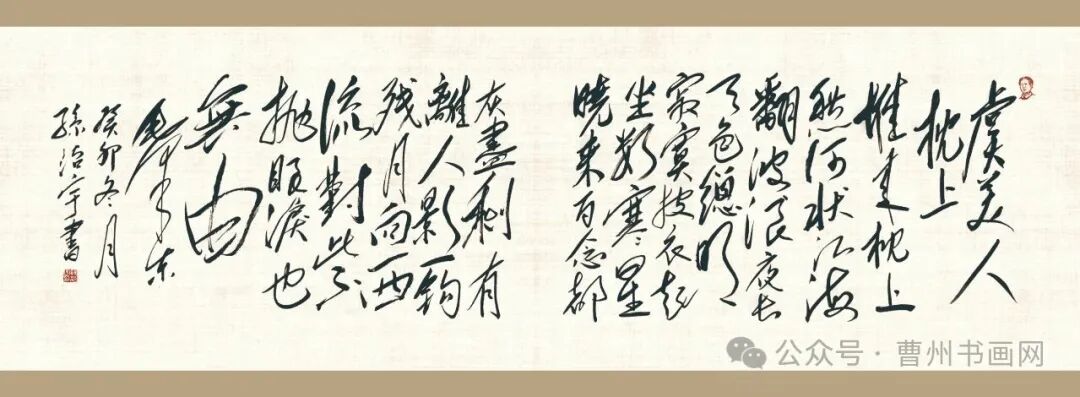 虞美人
枕上
堆来枕上
愁何状江海
翻波浪夜长
天色總明
寂寞披衣起
坐数寒星
晓来百念都
灰盡剩有
離人影一钩
残月向西
流對此不
抛眼淚也
無由
毛泽东
癸卯冬月
孫治宇書
公众号·曹州书画网